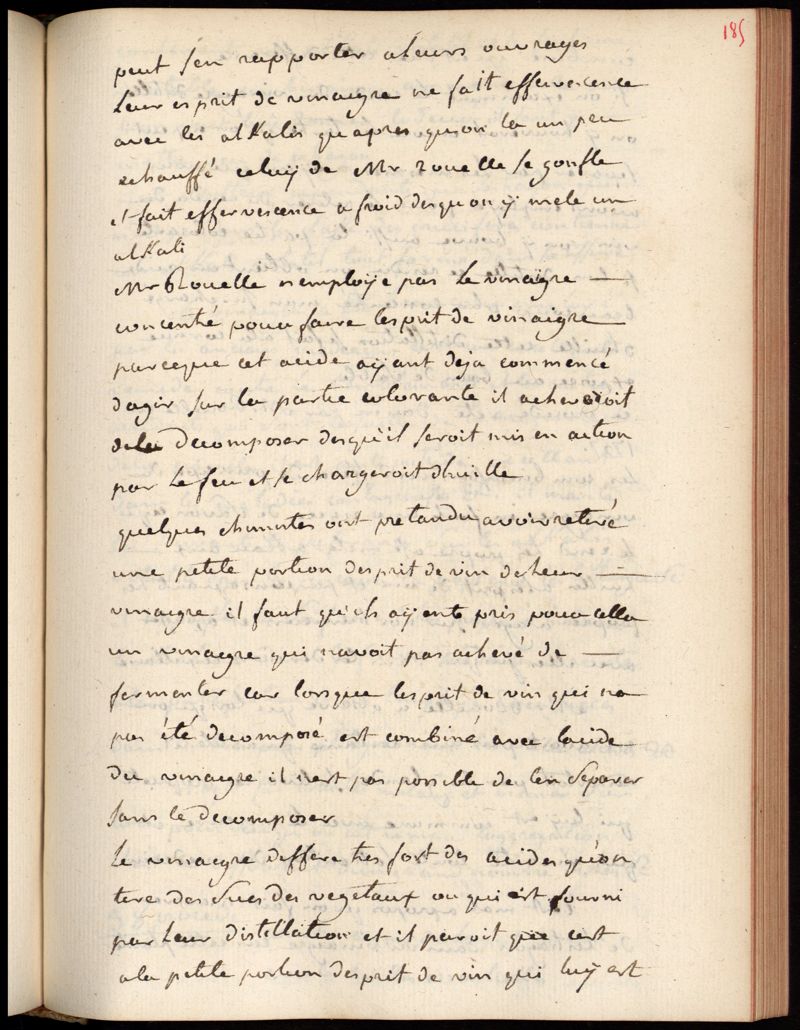 185
peut sen rapporter a leurs ouvrages
Leur esprit de vinaigre ne fait effervescence
avec les alKalis quapres quon la un peu
echauffé celuÿ de Mr rouelle se gonfle
et fait effervescence a froid des quon ÿ mele un
alKali
Mr Rouelle nemploÿe pas Le vinaigre —
concentré pour faire lesprit de vinaigre
parceque cet acide aÿant deja commencé
dagir sur la partie colorante il acheveroit
de la Decomposer des quil seroit mis en action
par Le feu et se chargeroit dhuille
quelques chimistes ont pretandu avoir retiré
une petite portion desprit de vin de Leur —
vinaigre il faut quils aÿent pris pour cella
un vinaigre qui navoit pas achevé de —
fermenter car lorsque lesprit de vin qui na
pas été decomposé est combiné avec lacide
Du vinaigre il nest pas possible de len Separer
sans le Decomposer
Le vinaigre differe tres fort des acides quon
tire des Sucs des vegetaux ou qui est fourni
par Leur distillation et il paroit que cest
a la petite portion desprit de vin qui luÿ est